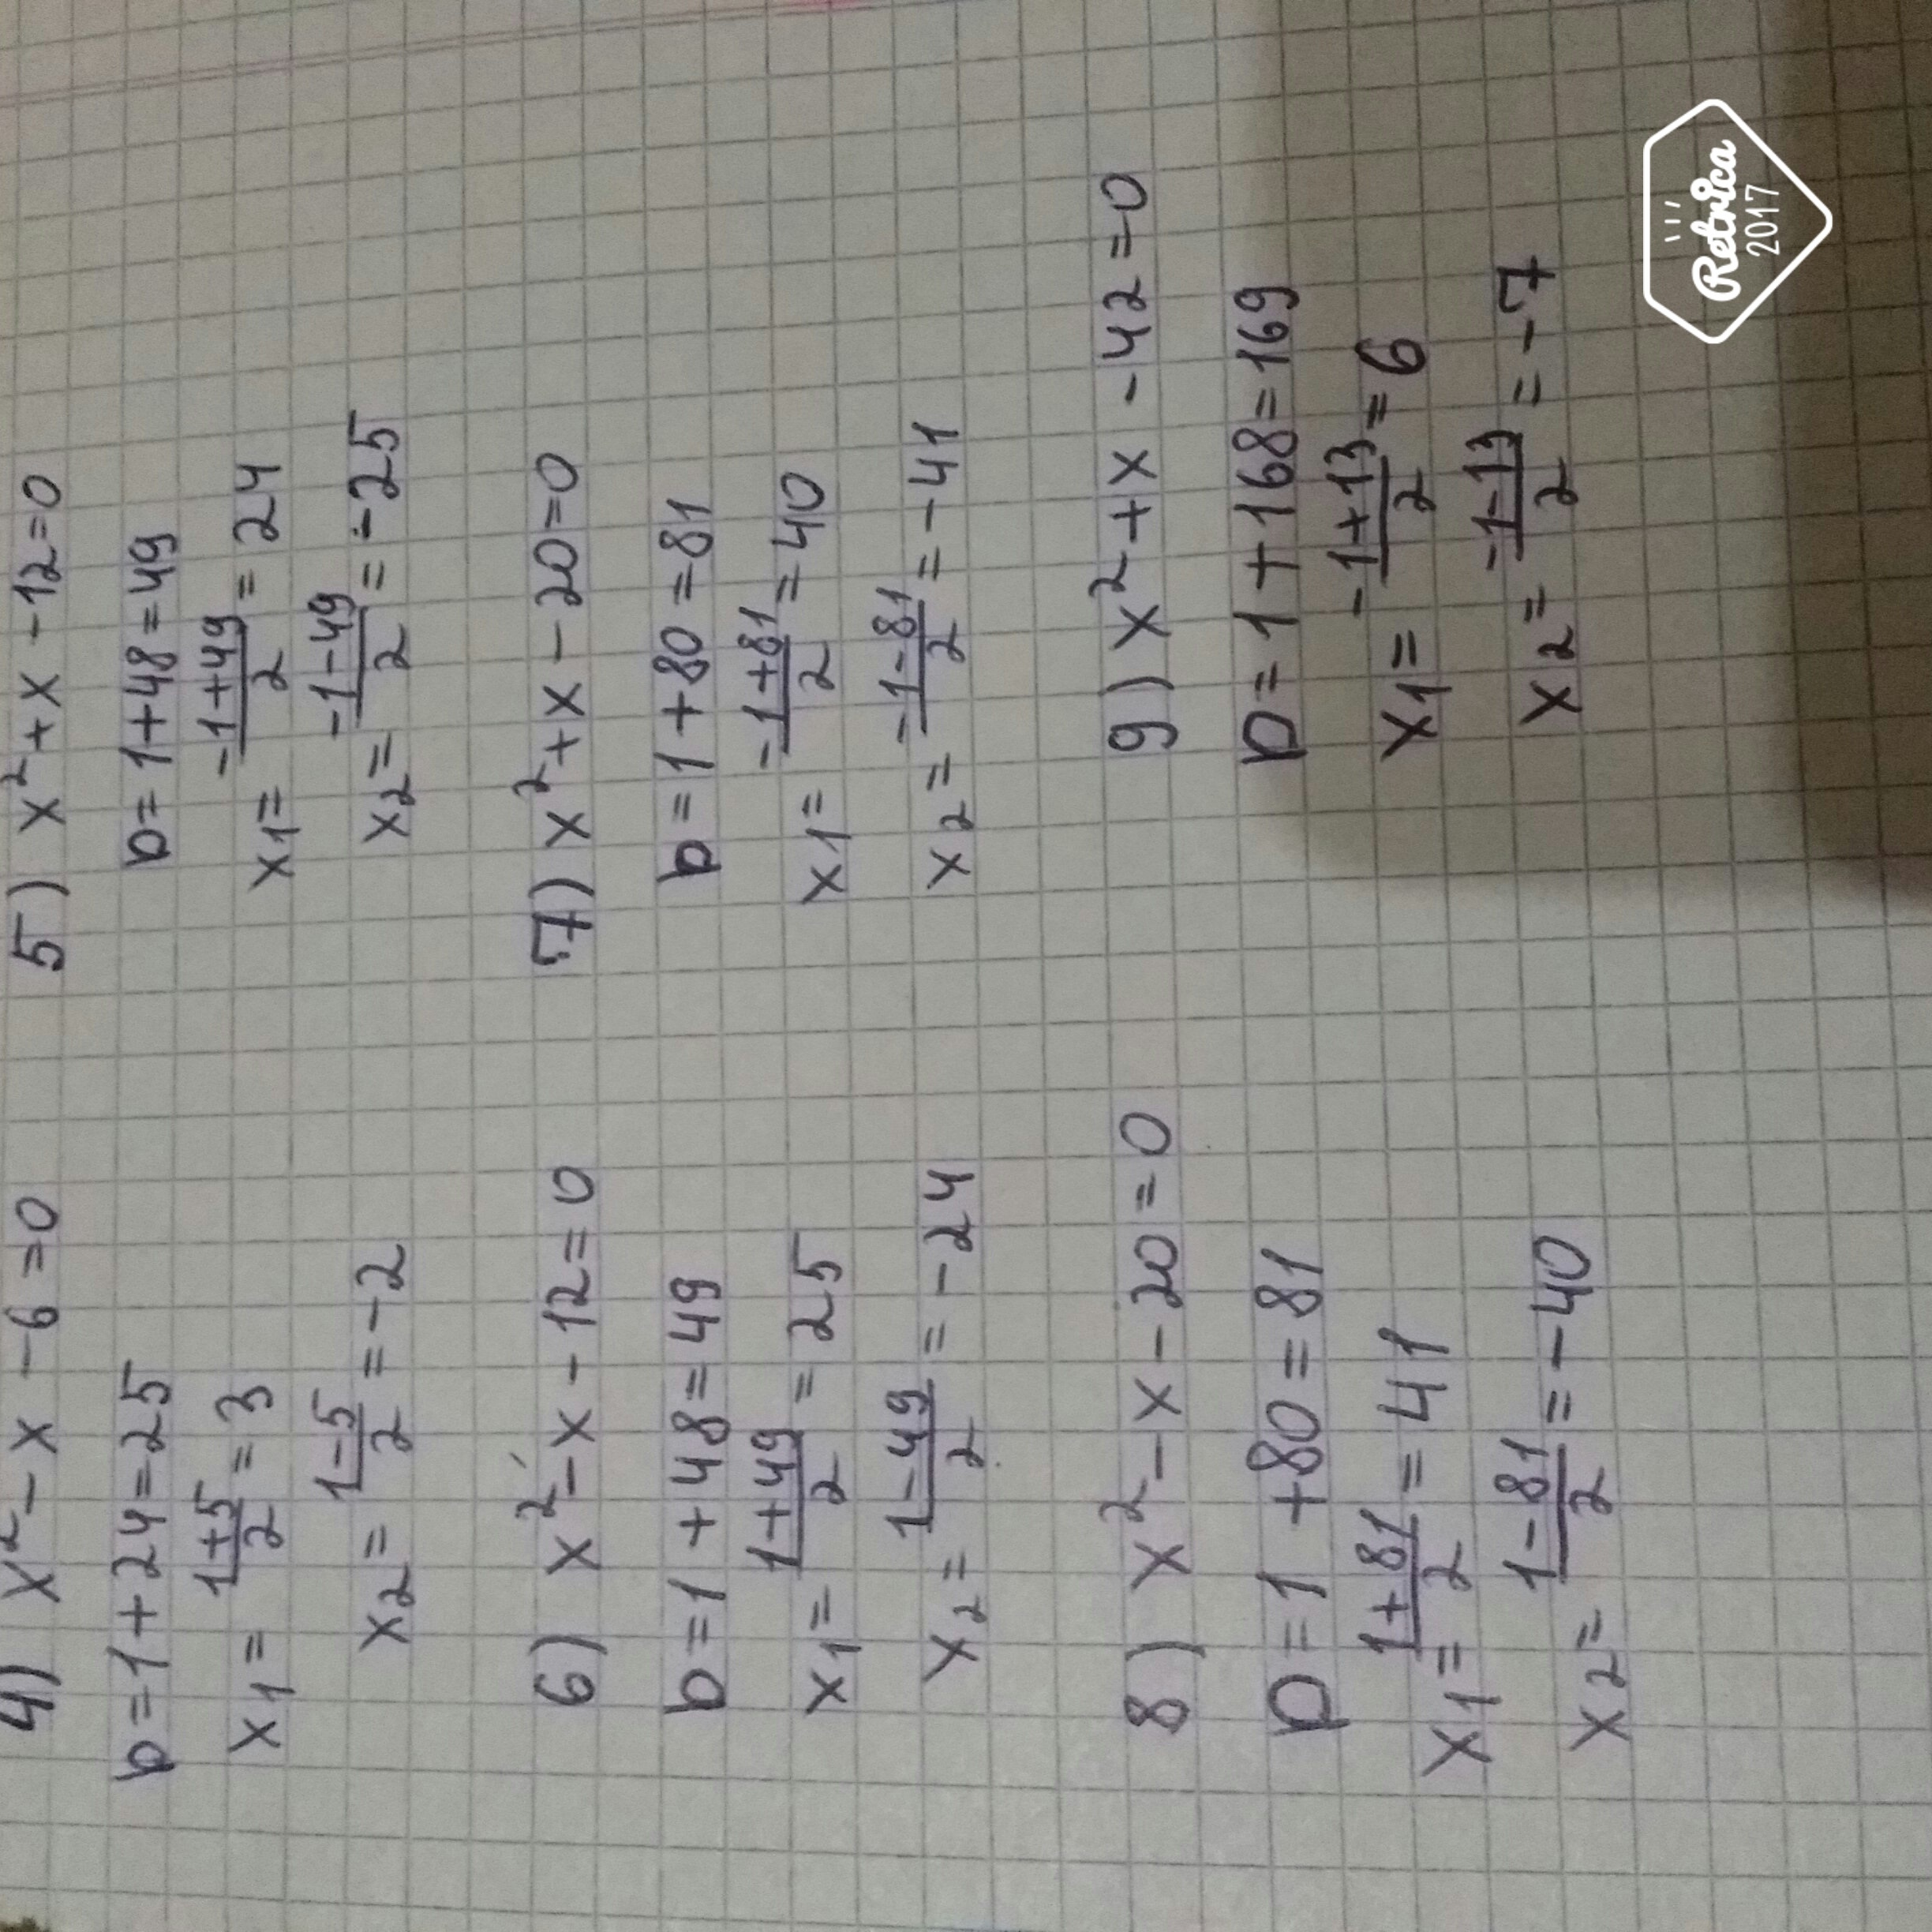 4) x² - x - 6 = 0
D = 1 + 24 = 25
x1 = (1+5)/2 = 3
x2 = (1-5)/2 = -2
5) x² + x - 12 = 0
D = 1 + 48 = 49
x1 = (-1+49)/2 = 24
x2 = (-1-49)/2 = -25
6) x² - x - 12 = 0
D = 1 + 48 = 49
x1 = (1+49)/2 = 25
x2 = (1-49)/2 = -24
7) x² + x - 20 = 0
D = 1 + 80 = 81
x1 = (-1+81)/2 = 40
x2 = (-1-81)/2 = -41
8) x² - x - 20 = 0
D = 1 + 80 = 81
x1 = (1+81)/2 = 41
x2 = (1-81)/2 = -40
9) x² + x - 42 = 0
D = 1 + 168 = 169
x1 = (-1+13)/2 = 6
x2 = (-1-13)/2 = -7
Retrica
2017